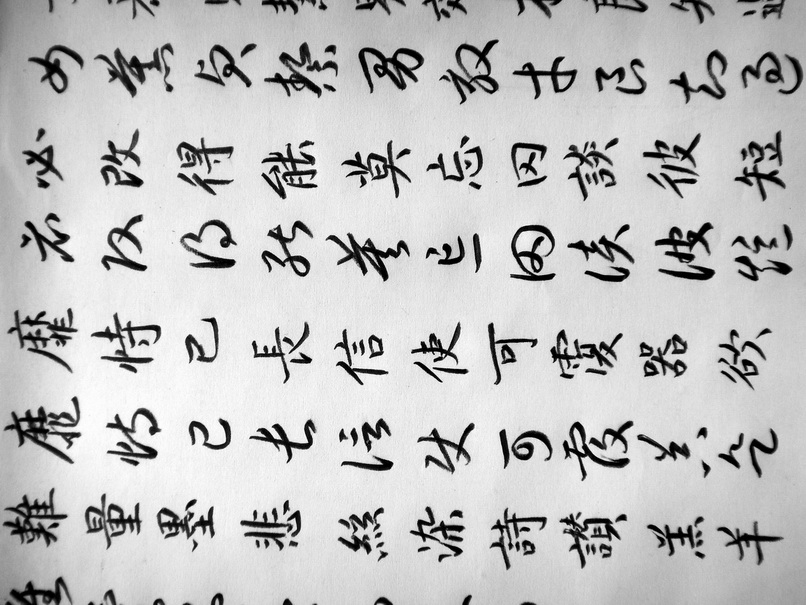 女慕貞絜男效才良知過
必改得能莫忘罔談彼短
必改得能莫忘罔談彼短
靡恃己長信使可覆器欲
靡恃己長信使可覆器欲
難量墨悲絲染詩讚羔羊